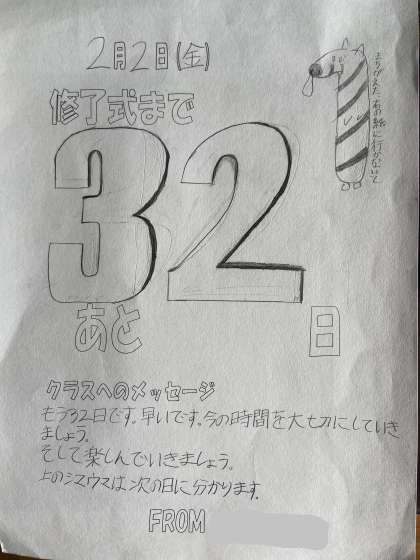 2月2日(金)
修了式まで
32
あと
日
クラスへのメッセージ
もう32日です。早いです。今の時間を大切にしていき
ましょう。
そして楽しんでいきましょう。
上のシマウマは次の日に分かります。
FROM